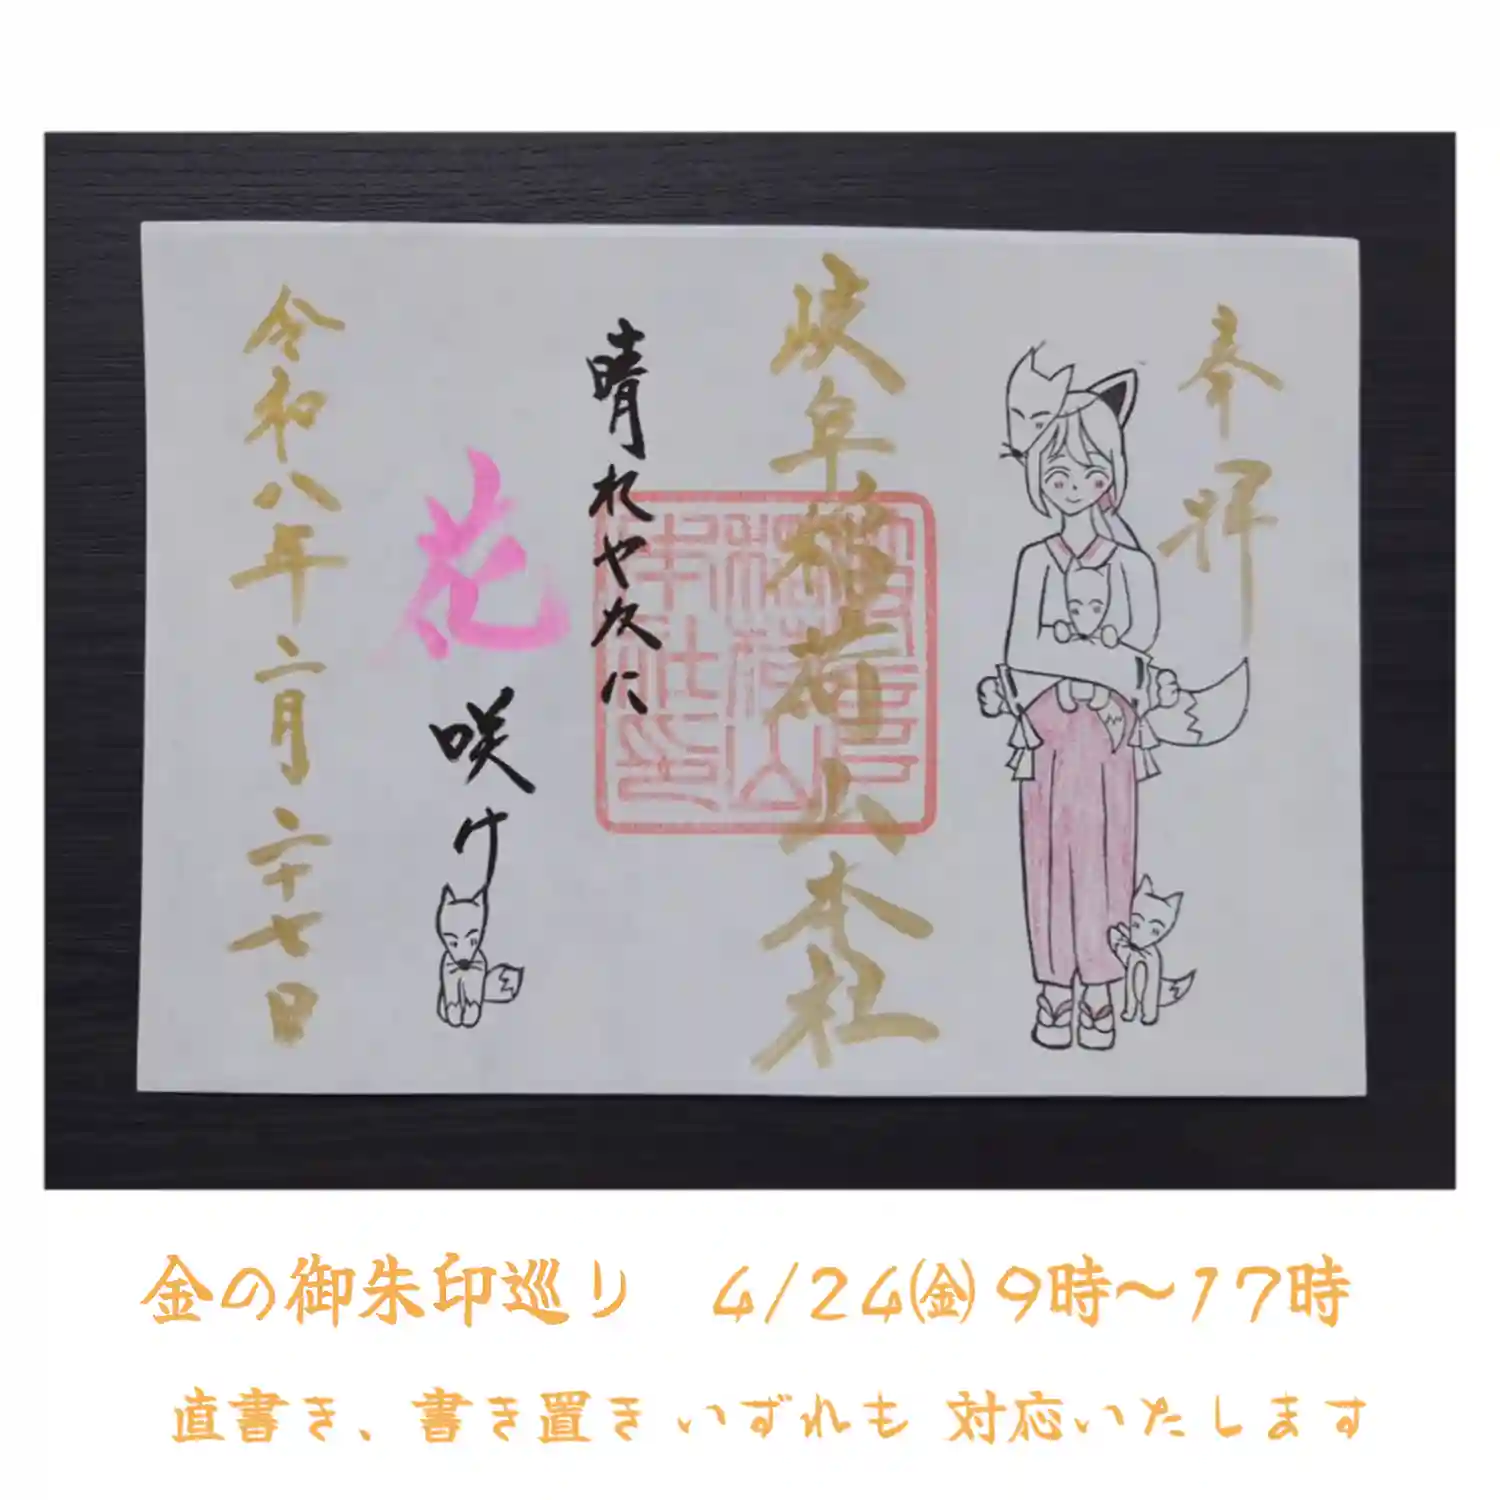 奉拝
岐阜稲荷山本社
晴れやかに
花咲け
令和八年二月二十七日
金の御朱印巡り 4/24㈮9時～17時
直書き、書き置きいずれも対応いたします